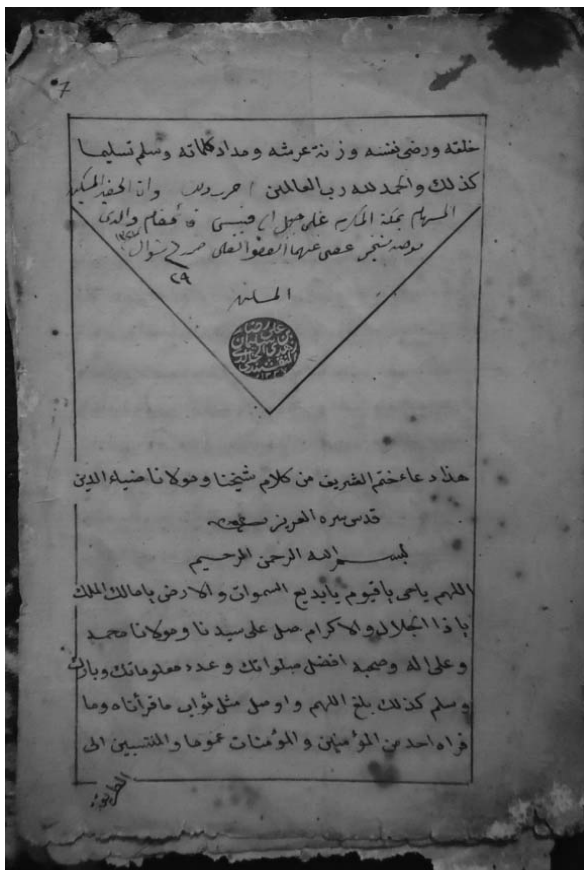 7
خلقه ورضى نفسه وزنة عرشه ومداد كلماته وسلم تسليما
كذلك والحمد لله رب العالمين وانا الحقير المسكين
بمكة المكرمة على جبل ابي قبيس والدى
عفى عنهما شوال
٢٩
المسلمين
هذا دعاء ختم الشريف من كلام شيخنا ومولانا ضياء الدين
قدس سره العزيز
بسم الله الرحمن الرحيم
اللهم ياحى ياقيوم يابديع السموات والارض يامالك الملك
ياذا الجلال والاكرام صل على سيدنا ومولانا محمد
وعلى اله وصحبه افضل صلواتك وعدد معلوماتك وبارك
وسلم كذلك بلغ اللهم واوصل مثل ثواب ماقرأناه وما
قراه احد من المؤمنين والمؤمنات عموما والمنتسبين الى
الطريقة